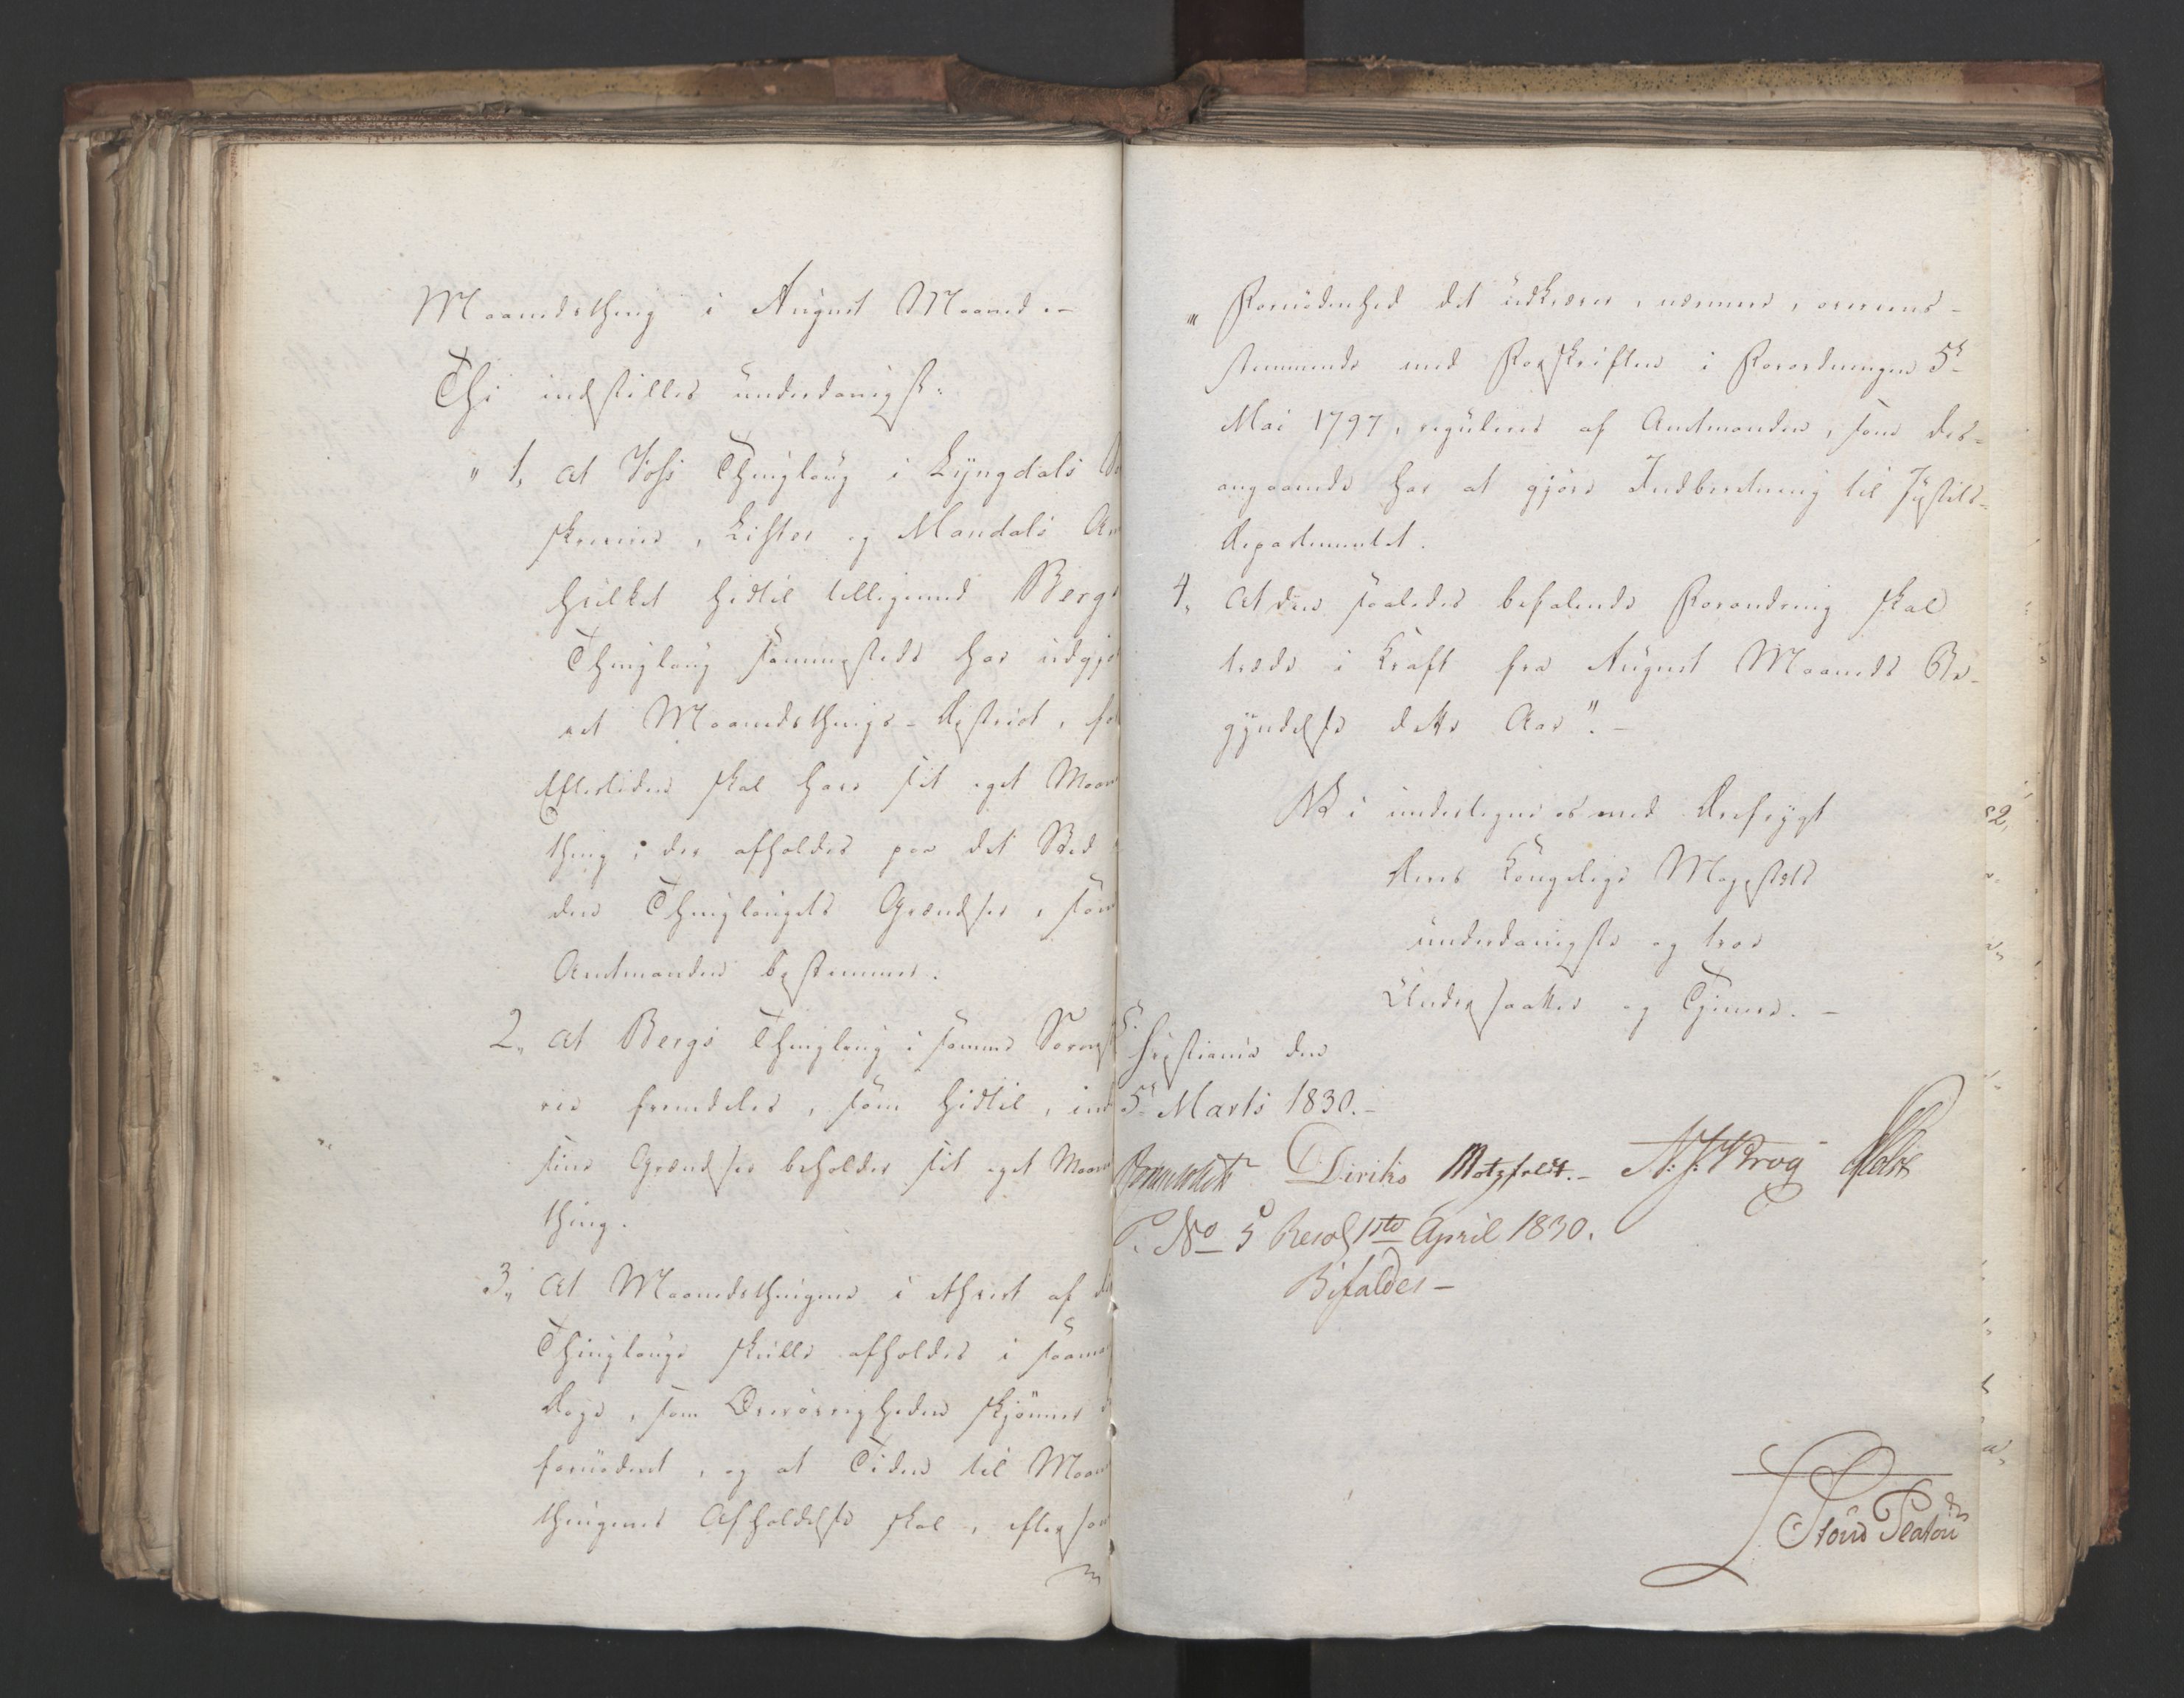 Maanedsthing i August Maaned.-
Thi indstilles underdanigst:
" 1, at Vose Thinglaug i Lyngdals So
skriverie, Lister og Mandals Am
hvilket hidtil tilligemed Bergs
Thinglaug sammesteds har udgjo
ret Maanedsthings-District, fo
Eftertiden skal have sit eget Maan
thing, der afholdes paa det Sted
den Thinglaugets Grændser, som
Amtmanden bestemmer.
2, at Bergs Thinglaug i samme Sorensk
rie fremdeles, som hidtil, ind
sine Grændser beholder sit eget Maan
thing.
3, at Maanedsthingene i ethvert af di
Thinglauge skulle afholdes i saama
Dage, som Øvrigheden skjønner
fornødent, og at Tiden til Maan
thingenes Afholdelse skal, eftersom
" Fornødenhed det udkræver, nærmere, overens-
stemmende med Forskriften i Forordningen 5te
Mai 1797, reguleres af Amtmanden, som des-
angaaende har at gjøre Indberetning til Justits-
departementet.
4, at den saaledes befalende Forandring skal
træde i Kraft fra August Maaneds Be-
gyndelse dette Aar".-
Vi undertegne os med Ærefrygt
Deres Kongelige Majestæts
underdanigste og troe
Undersaatter og Tjenere.-
Christiania den
5te Marts 1830.-
Diriks Motzfeldt.- N. J. Krog Holst
P. No 5 Resol 1ste April 1830.
Bifaldes-